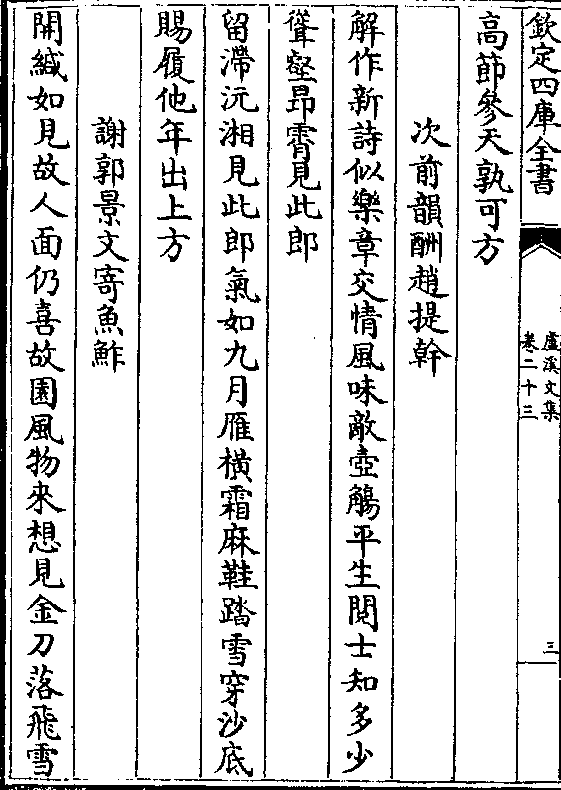 欽定四庫全書
盧溪文集
卷二十三
三
高節參天孰可方
次前韻酬趙提幹
解作新詩似樂章交情風味敵壺觴平生閱士知多少
聳壑昂霄見此郎
留滯沅湘見此郎氣如九月雁橫霜麻鞋踏雪穿沙底
賜履他年出上方
謝郭景文寄魚鮓
開緘如見故人面仍喜故園風物來想見金刀落飛雪